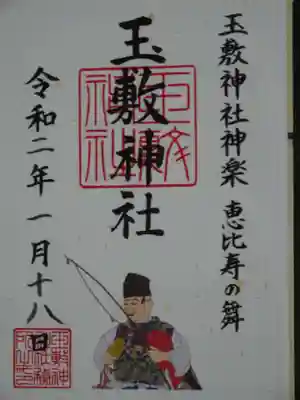 玉敷神社神楽 恵比寿の舞
玉敷神社
令和二年一月十八日